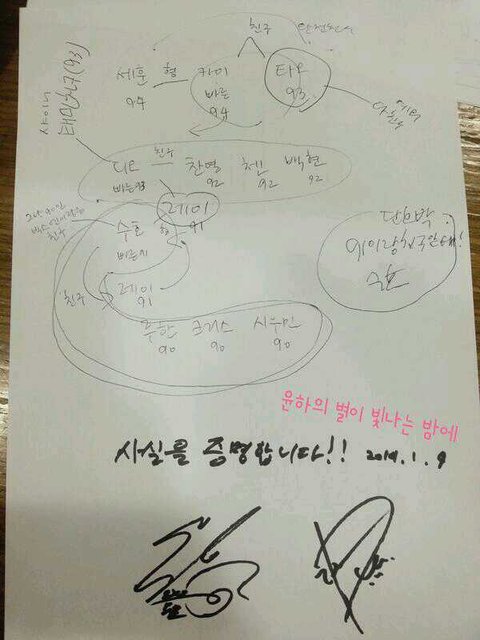 친구
세훈 형 카이 타오
94 빠른 94 93
샤이니
태민친구(93)
친구
디오 찬열 첸 백현
빠른93 92 92 92
레이
91
수호 형
빠른91
친구
레이
91
루한 크리스 시우민
90 90 90
단호박
91이랑 친구 안해!
수호
윤하의 별이 빛나는 밤에
사실을 증명합니다!! 2014.1.9